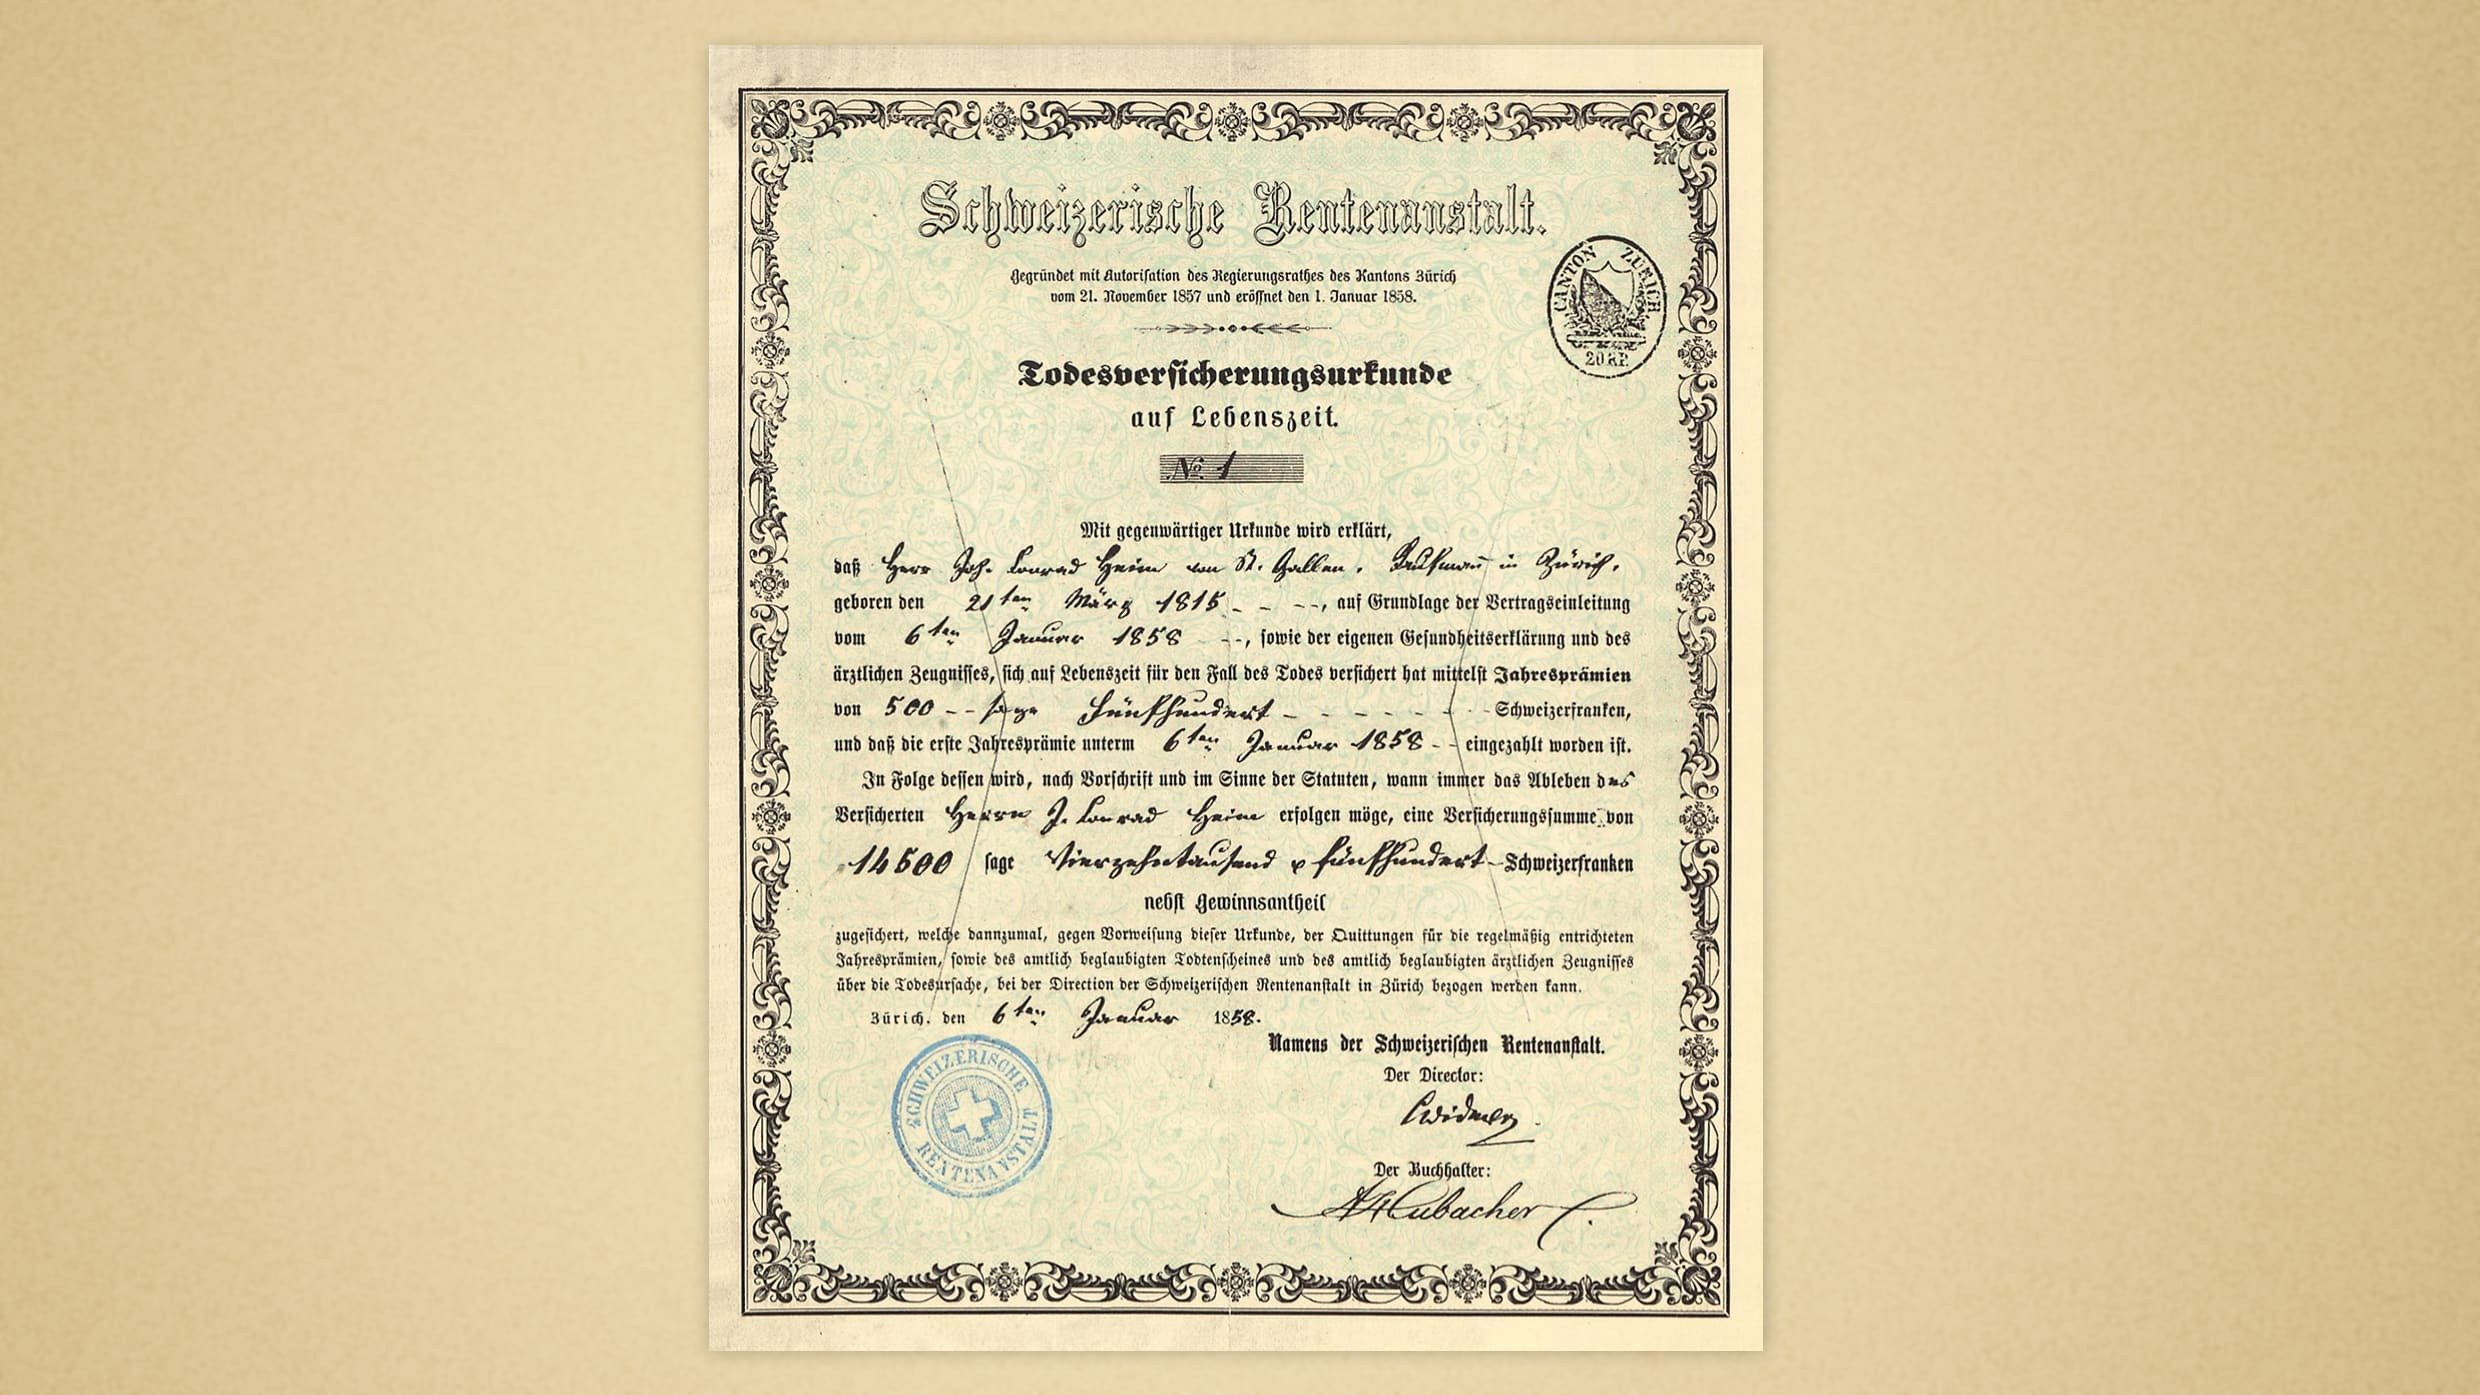 Schweizerische Rentenanstalt.
Gegründet mit Autorisation des Regierungsrathes des Kantons Zürich
vom 21. November 1857 und eröffnet den 1. Januar 1858.
CANTON ZÜRICH
20 RP.
Todesversicherungsurkunde
auf Lebenszeit.
No. 1
Mit gegenwärtiger Urkunde wird erklärt,
daß Herr Joh. Conrad Heim von St. Gallen, Kaufmann in Zürich,
geboren den 21ten März 1815 - - --, auf Grundlage der Vertragseinleitung
vom 6ten Januar 1858 --, sowie der eigenen Gesundheitserklärung und des
ärztlichen Zeugnisses, sich auf Lebenszeit für den Fall des Todes versichert hat mittelst Jahresprämien
von 500 -- sage Fünfhundert - - - - - - - Schweizerfranken,
und daß die erste Jahresprämie unterm 6ten Januar 1858 - - eingezahlt worden ist.
In Folge dessen wird, nach Vorschrift und im Sinne der Statuten, wann immer das Ableben des
Versicherten Herrn J. Conrad Heim erfolgen möge, eine Versicherungssumme von
14500 sage Vierzehntausend & fünfhundert - Schweizerfranken
nebst Gewinnsantheil
zugesichert, welche dannzumal, gegen Vorweisung dieser Urkunde, der Quittungen für die regelmäßig entrichteten
Jahresprämien, sowie des amtlich beglaubigten Todtenscheines und des amtlich beglaubigten ärztlichen Zeugnisses
über die Todesursache, bei der Direction der Schweizerischen Rentenanstalt in Zürich bezogen werden kann.
Zürich, den 6ten Januar 1858.
Namens der Schweizerischen Rentenanstalt.
Der Director:
CWidmer
Der Buchhalter:
A Hubacher
SCHWEIZERISCHE
RENTENANSTALT